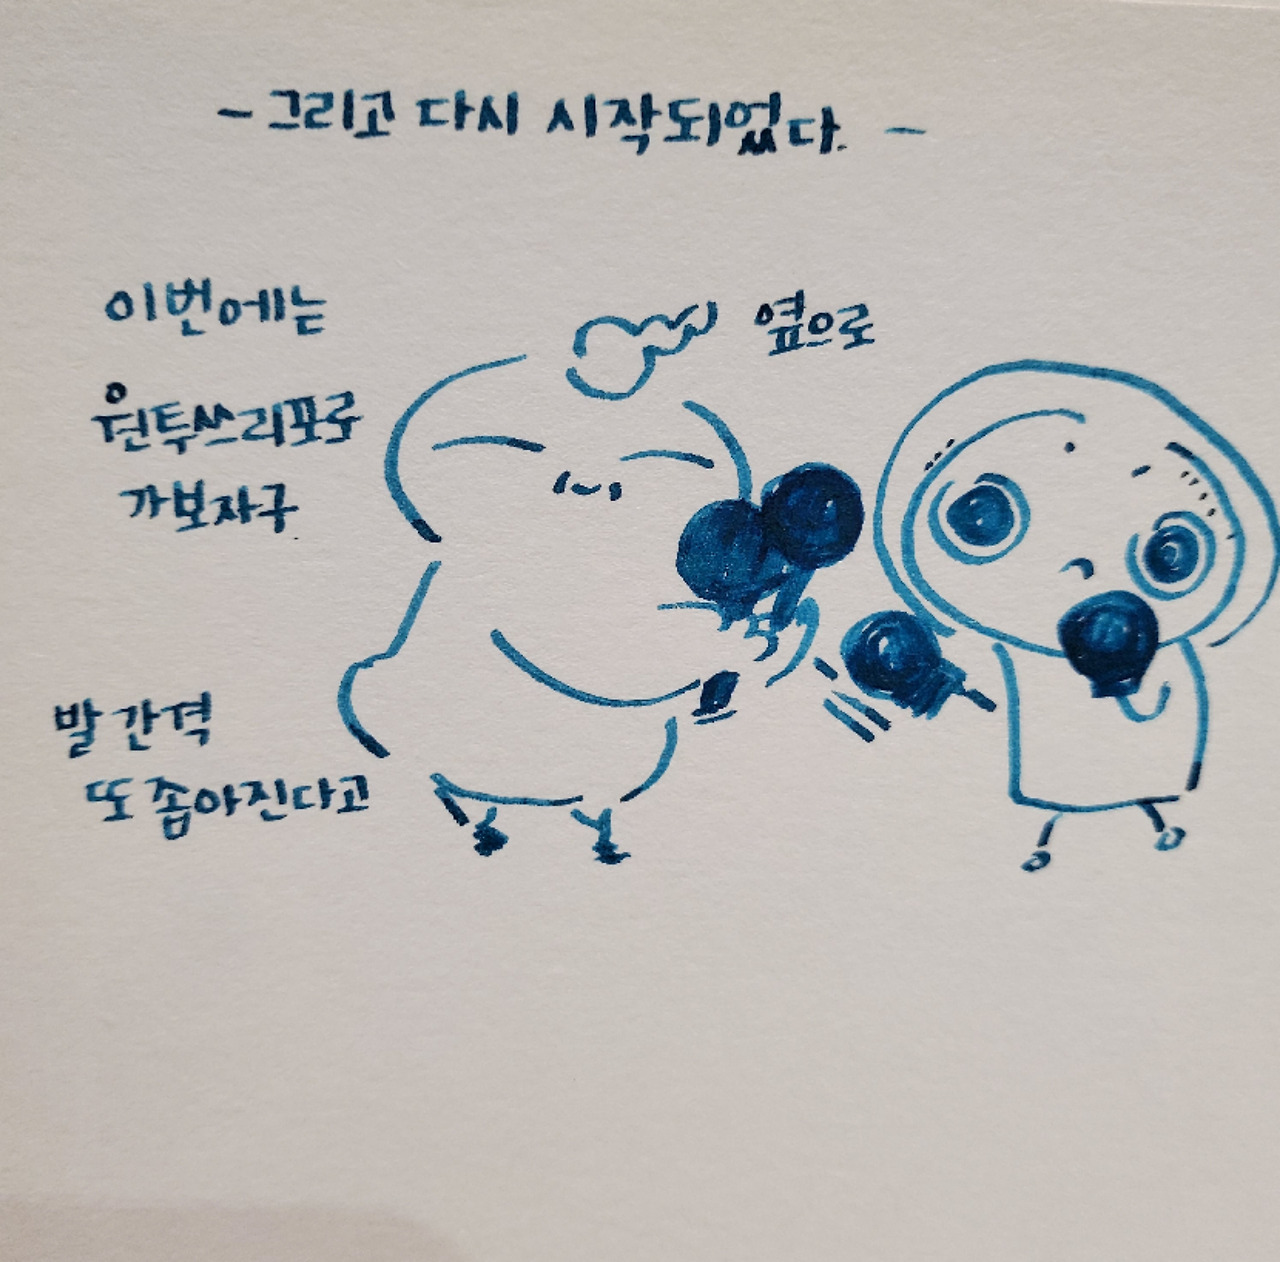 - 그리고 다시 시작되었다. -
이번에는
원투쓰리포로
가보자구
옆으로
발 간격
또 좁아진다고